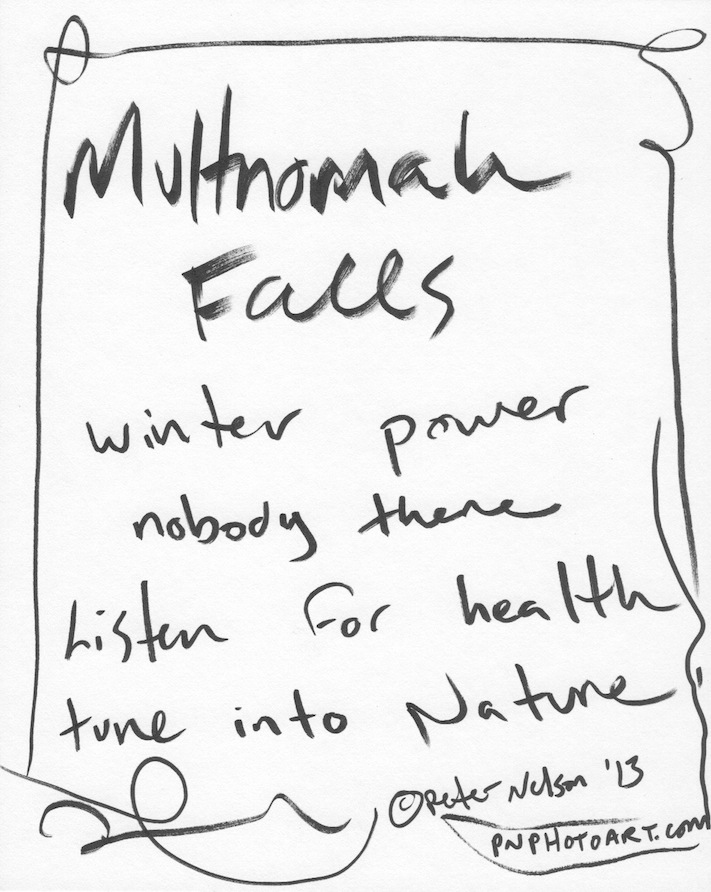 Multnomah
Falls
winter power
nobody there
Listen for health
tune into Nature
©Peter Nelson '13
PNPHOTOART.com